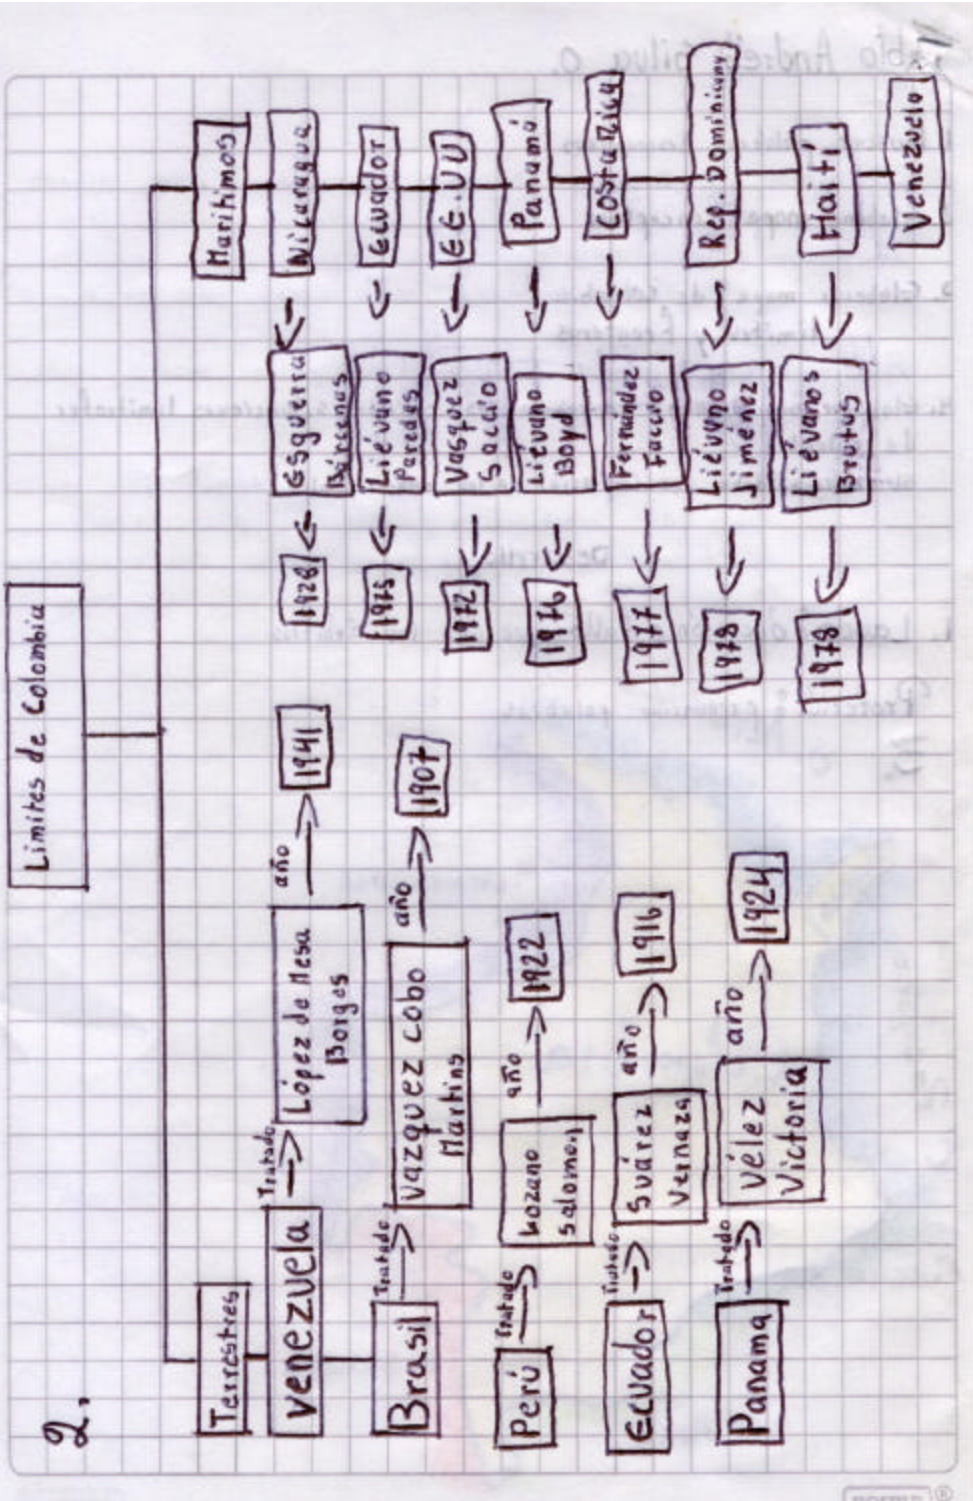 2.
Limites de Colombia
Terrestres
Venezuela
Tratado
López de Mesa
Borges
año
1941
Brasil
Tratado
Vazquez Cobo
Martins
año
1907
Perú
Tratado
Lozano
Salomon
año
1922
Ecuador
Tratado
Suárez
Vernaza
año
1916
Panama
Tratado
Vélez
Victoria
año
1924
Maritimos
Nicaragua
Esguerra
Bárcenas
1928
Ecuador
Liévano
Paredes
1975
EE.UU
Vasquez
Saccio
1972
Panamá
Liévano
Boyd
1976
Costa Rica
Fernández
Faccio
1977
Rep. Dominicana
Liévano
Jiménez
1978
Haití
Liévanos
Brutus
1978
Venezuela